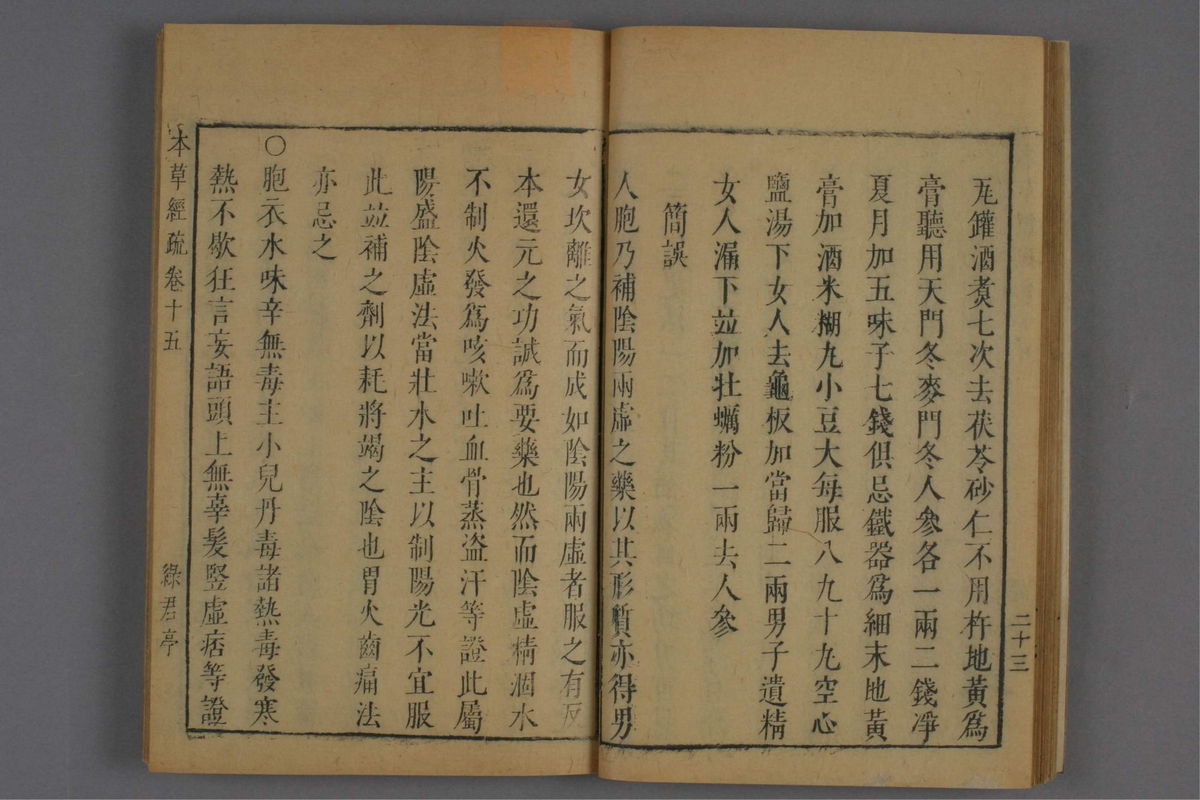 瓦罐酒煑七次去茯苓砂仁不用杵地黃爲
膏聽用天門冬麥門冬人參各一兩二錢淨
夏月加五味子七錢俱忌鐵器爲細末地黃
膏加酒米糊丸小豆大每服八九十丸空心
鹽湯下女人去龜板加當歸二兩男子遺精
女人漏下竝加牡蠣粉一兩去人參
簡誤
人胞乃補陰陽兩虛之藥以其形質亦得男
二十三
女坎離之氣而成如陰陽兩虛者服之有反
本還元之功誠爲要藥也然而陰虛精涸水
不制火發爲咳嗽吐血骨蒸盗汗等證此屬
陽盛陰虛法當壯水之主以制陽光不宜服
此竝補之劑以耗將竭之陰也胃火齒痛法
亦忌之
〇胞衣水味辛無毒主小兒丹毒諸熱毒發寒
熱不歇狂言妄語頭上無辜髮豎虛痞等證
本草經疏卷十五
綠君亭